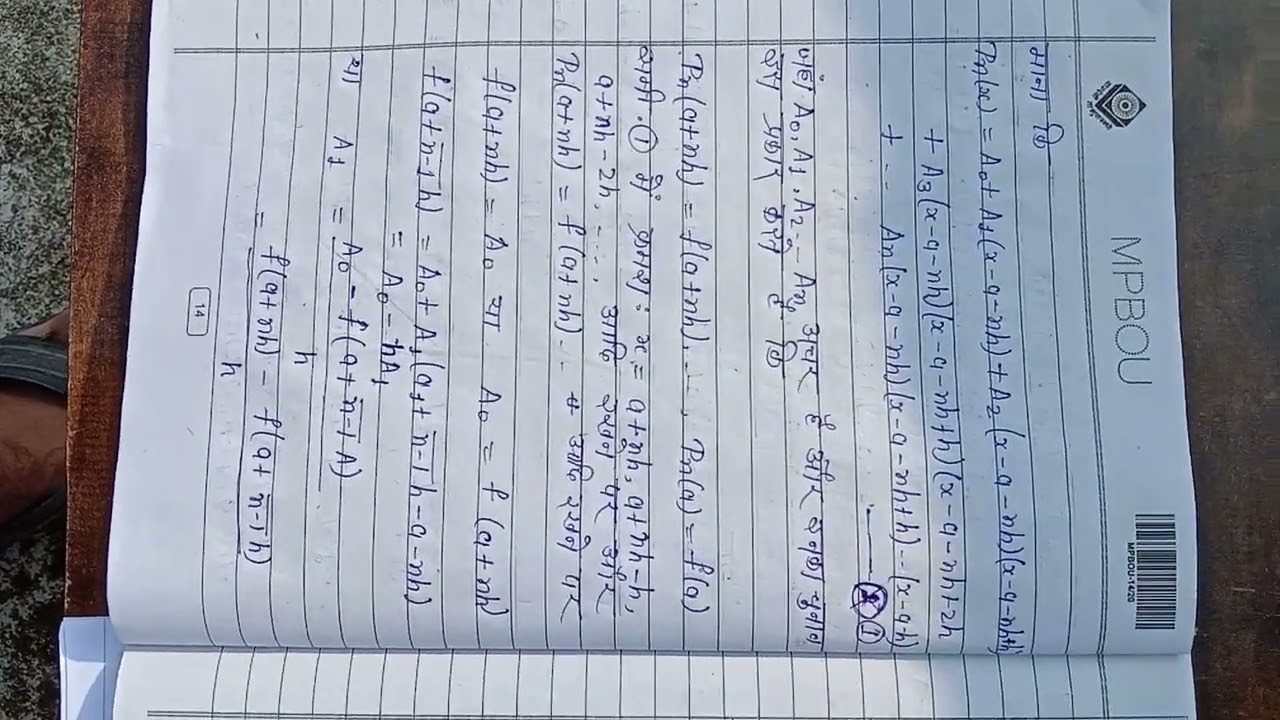 MPBOU
MPBOU-14/20
माना कि
Pn(x) = A0 + A1(x-a-nh) + A2(x-a-nh)(x-a-nh+h)
+ A3(x-a-nh)(x-a-nh+h)(x-a-nh+2h
+ -- An(x-a-nh)(x-a-nh+h) - (x-a-h)
①
जहाँ A0, A1, A2 -- An अचर है और इनका चुनाव
इस प्रकार करते है कि
Pn(a+nh) = f(a+nh), --, Pn(a) = f(a)
समी. ① में क्रमशः x = a+nh, a+nh-h,
a+nh-2h, ----, आदि रखने पर और
Pn(a+nh) = f(a+nh) -- आदि रखने पर
f(a+nh) = A0 या A0 = f(a+nh)
f(a+n̅-̅1̅h) = A0 + A1(a+n̅-̅1̅h-a-nh)
= A0 - hA1
या A1 = A0 - f(a+n̅-̅1̅A)
h
= f(a+nh) - f(a+n̅-̅1̅h)
h
14